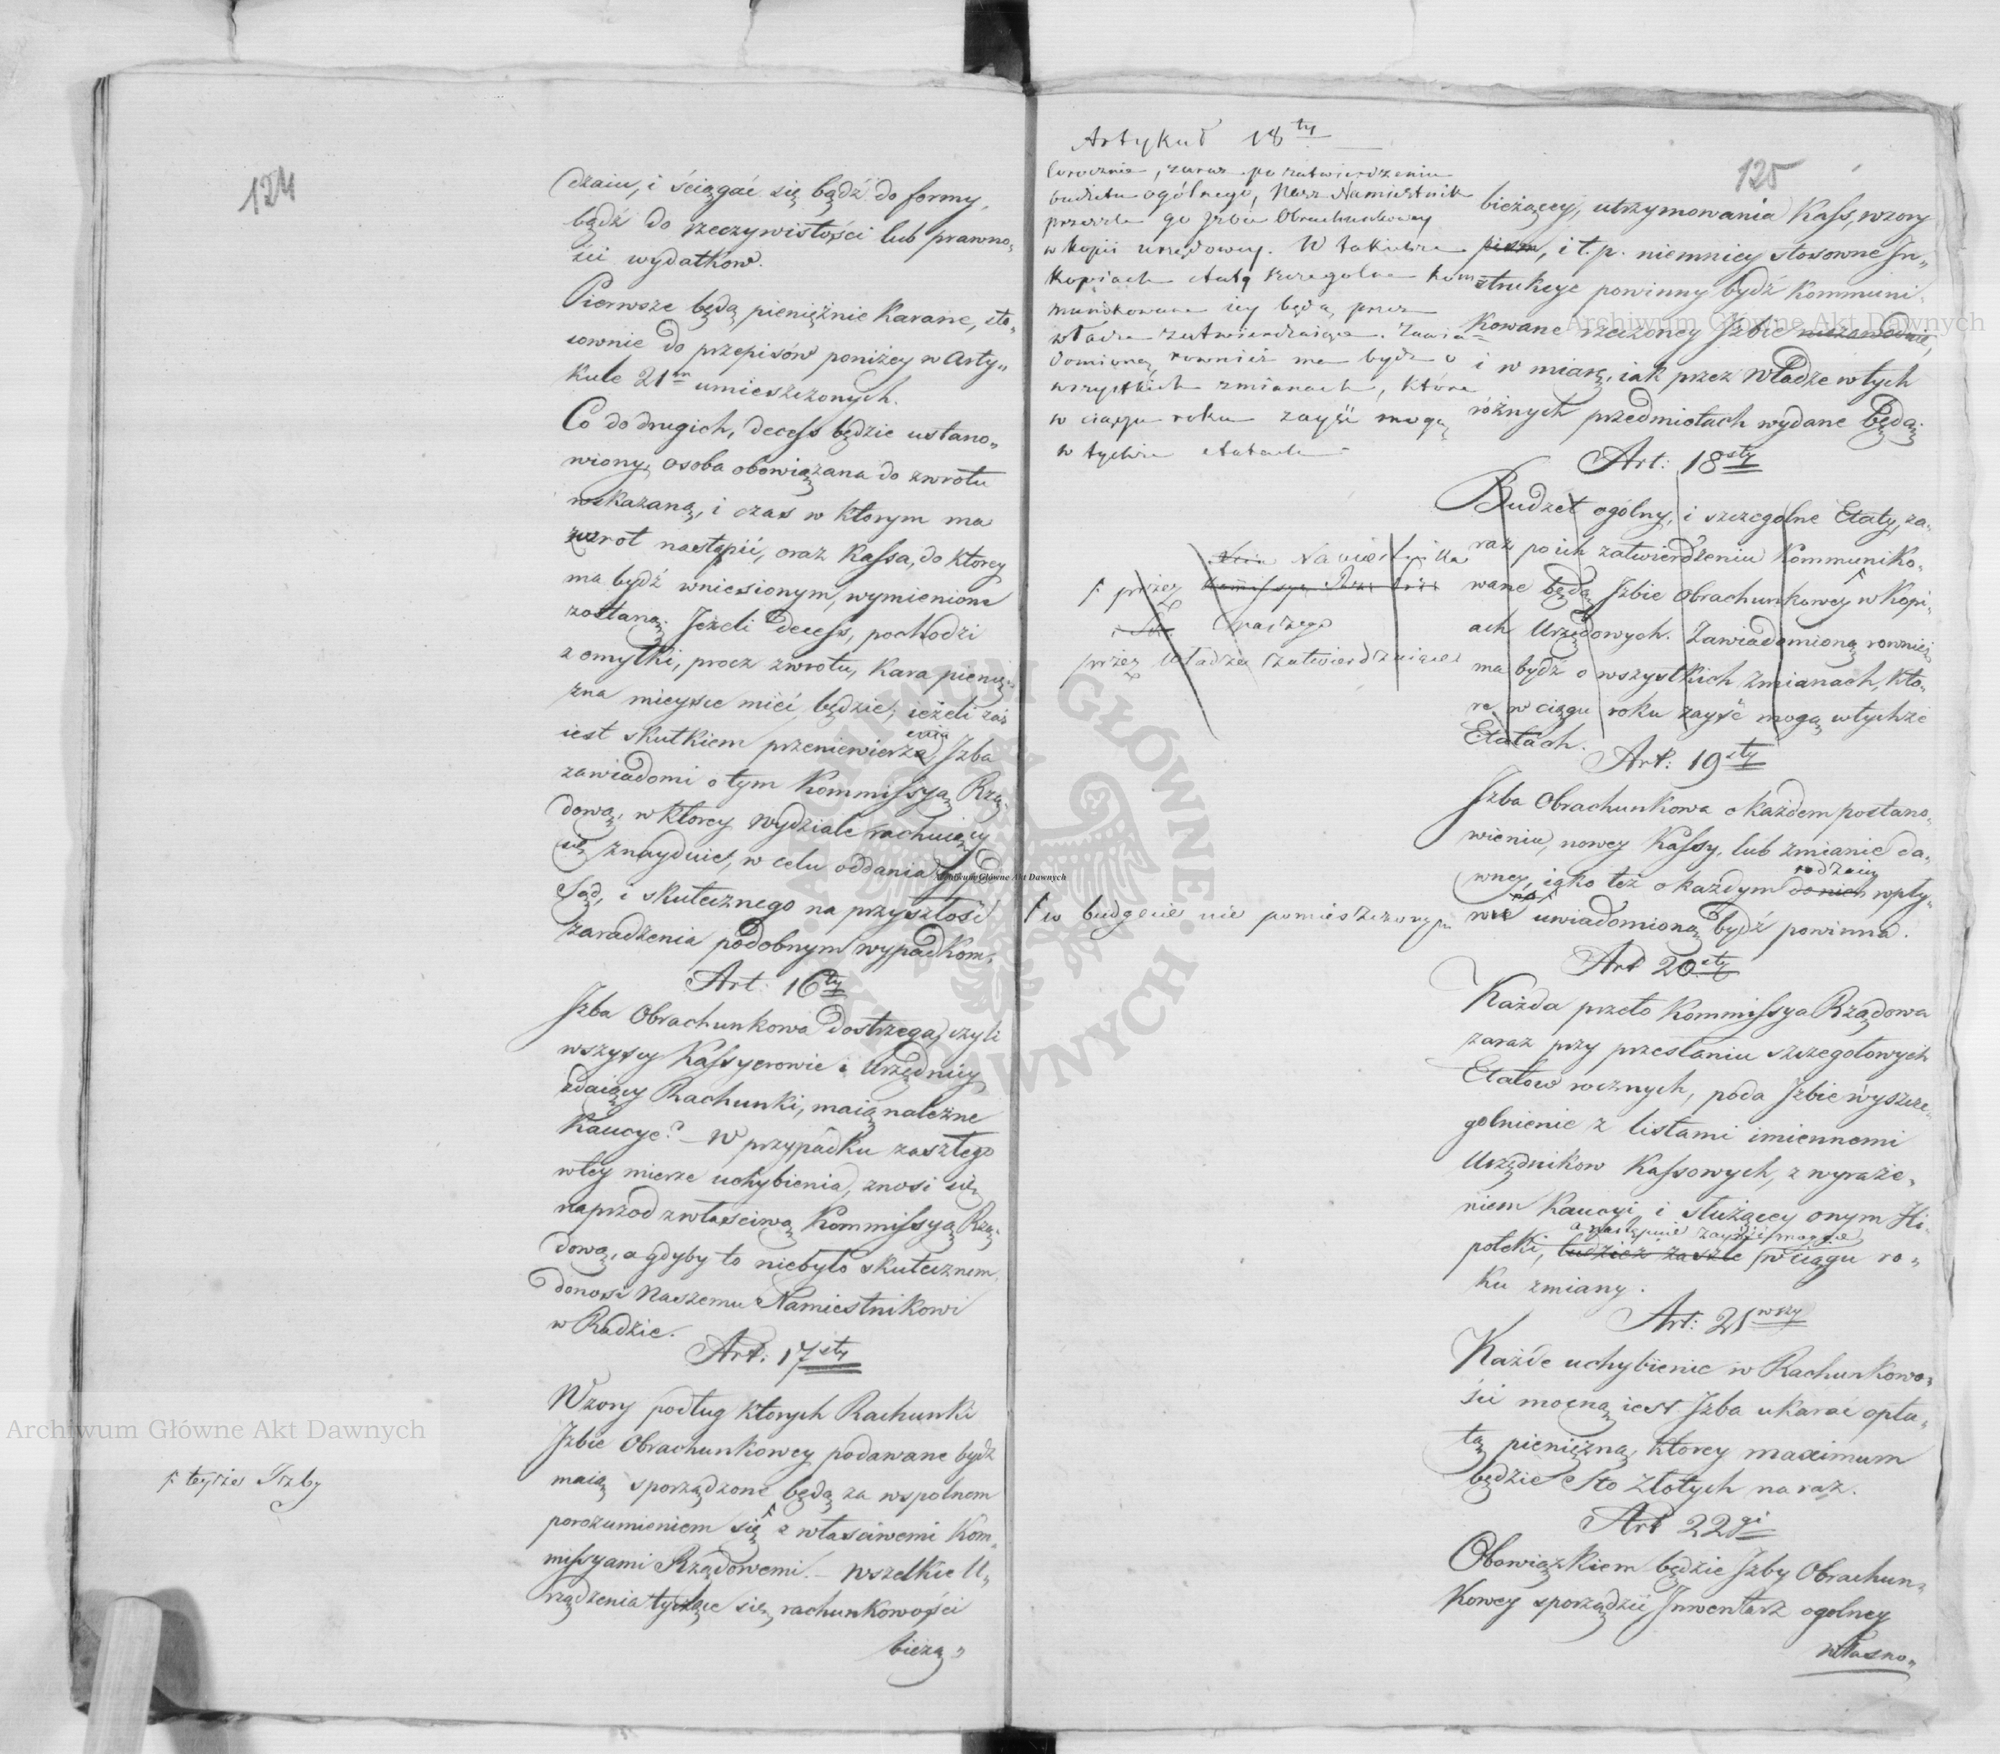 124
dzaiu, i ściągać się bądź do formy,
bądź do rzeczywistości lub prawno„
ści wydatków.
Pierwsze będą pieniężnie karane, sto„
sownie do przepisów poniżey w Arty„
kule 21m umieszczonych.
Co do drugich, decess będzie ustano„
wiony, osoba obowiązana do zwrotu
wskazaną, i czas w ktorym ma
zwrot nastąpić, oraz Kassa, do ktorey
ma bydź wniesionym, wymienione
zostaną. Jeżeli decess, pochodzi
z omyłki, procz zwrotu, kara pienięż„
zna mieysce mieć będzie; ieżeli zaś
iest skutkiem przeniewierza Izba
zawiadomi o tym Kommissyą Rzą„
dową, w ktorey wydziale rachuiący
się znayduie, w celu oddania pod
Sąd, i skutecznego na przyszłość
zaradzenia podobnym wypadkom.
Art: 16ty
Izba Obrachunkowa dostrzega, czyli
wszyscy Kassyerowie i Urzędnicy
zdaiący Rachunki, maią należne
Kaucye? – W przypadku zaszłego
w tey mierze uchybienia, znosi się
naprzod z właściwą Kommissyą Rzą„
dową, a gdyby to niebyło skutecznem
donosi Naszemu Namiestnikowi
w Radzie.
Art: 17sty
Wzory podług ktorych Rachunki
Izbie Obrachunkowey podawane bydź
maią sporządzone będą za wspolnem
porozumieniem się Ⴕ z właściwemi Kom„
missyami Rządowemi. – Wszelkie U„
rządzenia tyczące się rachunkowości
bieżą„
Ⴕ teyże Izby
125
Artykuł 18ty
Corocznie, zaraz po zatwierdzeniu
budżetu ogólnego, Nasz Namiestnik
przeszle go Izbie Obrachunkowey
w kopii urzędowey. W takichże
kopiach etaty szczegolne kom„
munikowane iey będą przez
władze zatwierdzaiące. Zawia„
domioną rownież ma bydź o
wszystkich zmianach, które
w ciągu roku zayść mogą
w tychże etatach –
Ⴕ przez
Namiestnika
Naszego
przez Władze zatwierdzaiące
Ⴕ w budżecie nie pomieszczonym
bieżącey, utrzymowania Kass, wzory
pism, i t.p. niemniey stosowne In„
strukcye powinny bydź kommuni„
kowane rzeczoney Izbie niezawodnie,
i w miarę, iak przez Władze w tych
różnych przedmiotach wydane będą.
Art: 18sty
Budżet ogólny, i szczegolne Etaty, za„
raz po ich zatwierdzeniu kommuniko„
wane będą Izbie Obrachunkowey Ⴕ w kopi„
ach Urzędowych. Zawiadomioną rownież
ma bydź o wszystkich zmianach, kto„
re w ciągu roku zayść mogą w tychże
Etatach.
Art: 19sty
Izba Obrachunkowa o każdem postano„
wieniu, nowey Kassy, lub zmianie da„
wney, iako też o każdym rodzaiu wpły„
wie uwiadomioną bydź powinna.
Art 20sty
Każda przeto Kommissya Rządowa
zaraz przy przesłaniu szczegołowych
Etatow rocznych, poda Izbie wyszcze„
golnienie z listami imiennemi
Urzędnikow Kassowych, z wyraże„
niem Kaucyi, i służącey onym Hi„
a następnie zayść mogące
poteki, tudzież zaszłe w ciągu ro„
ku zmiany.
Art: 21wszy
Każde uchybienie w Rachunkowo„
ści mocną iest Izba ukarać opła„
tą pieniężną, ktorey maximum
będzie Sto Złotych na raz.
Art 22gi
Obowiązkiem będzie Izby Obrachun„
kowey sporządzić Inwentarz ogolney
własno„
Archiwum Główne Akt Dawnych
Archiwum Główne Akt Dawnych
Archiwum Główne Akt Dawnych
ARCHIWUM GŁÓWNE AKT DAWNYCH